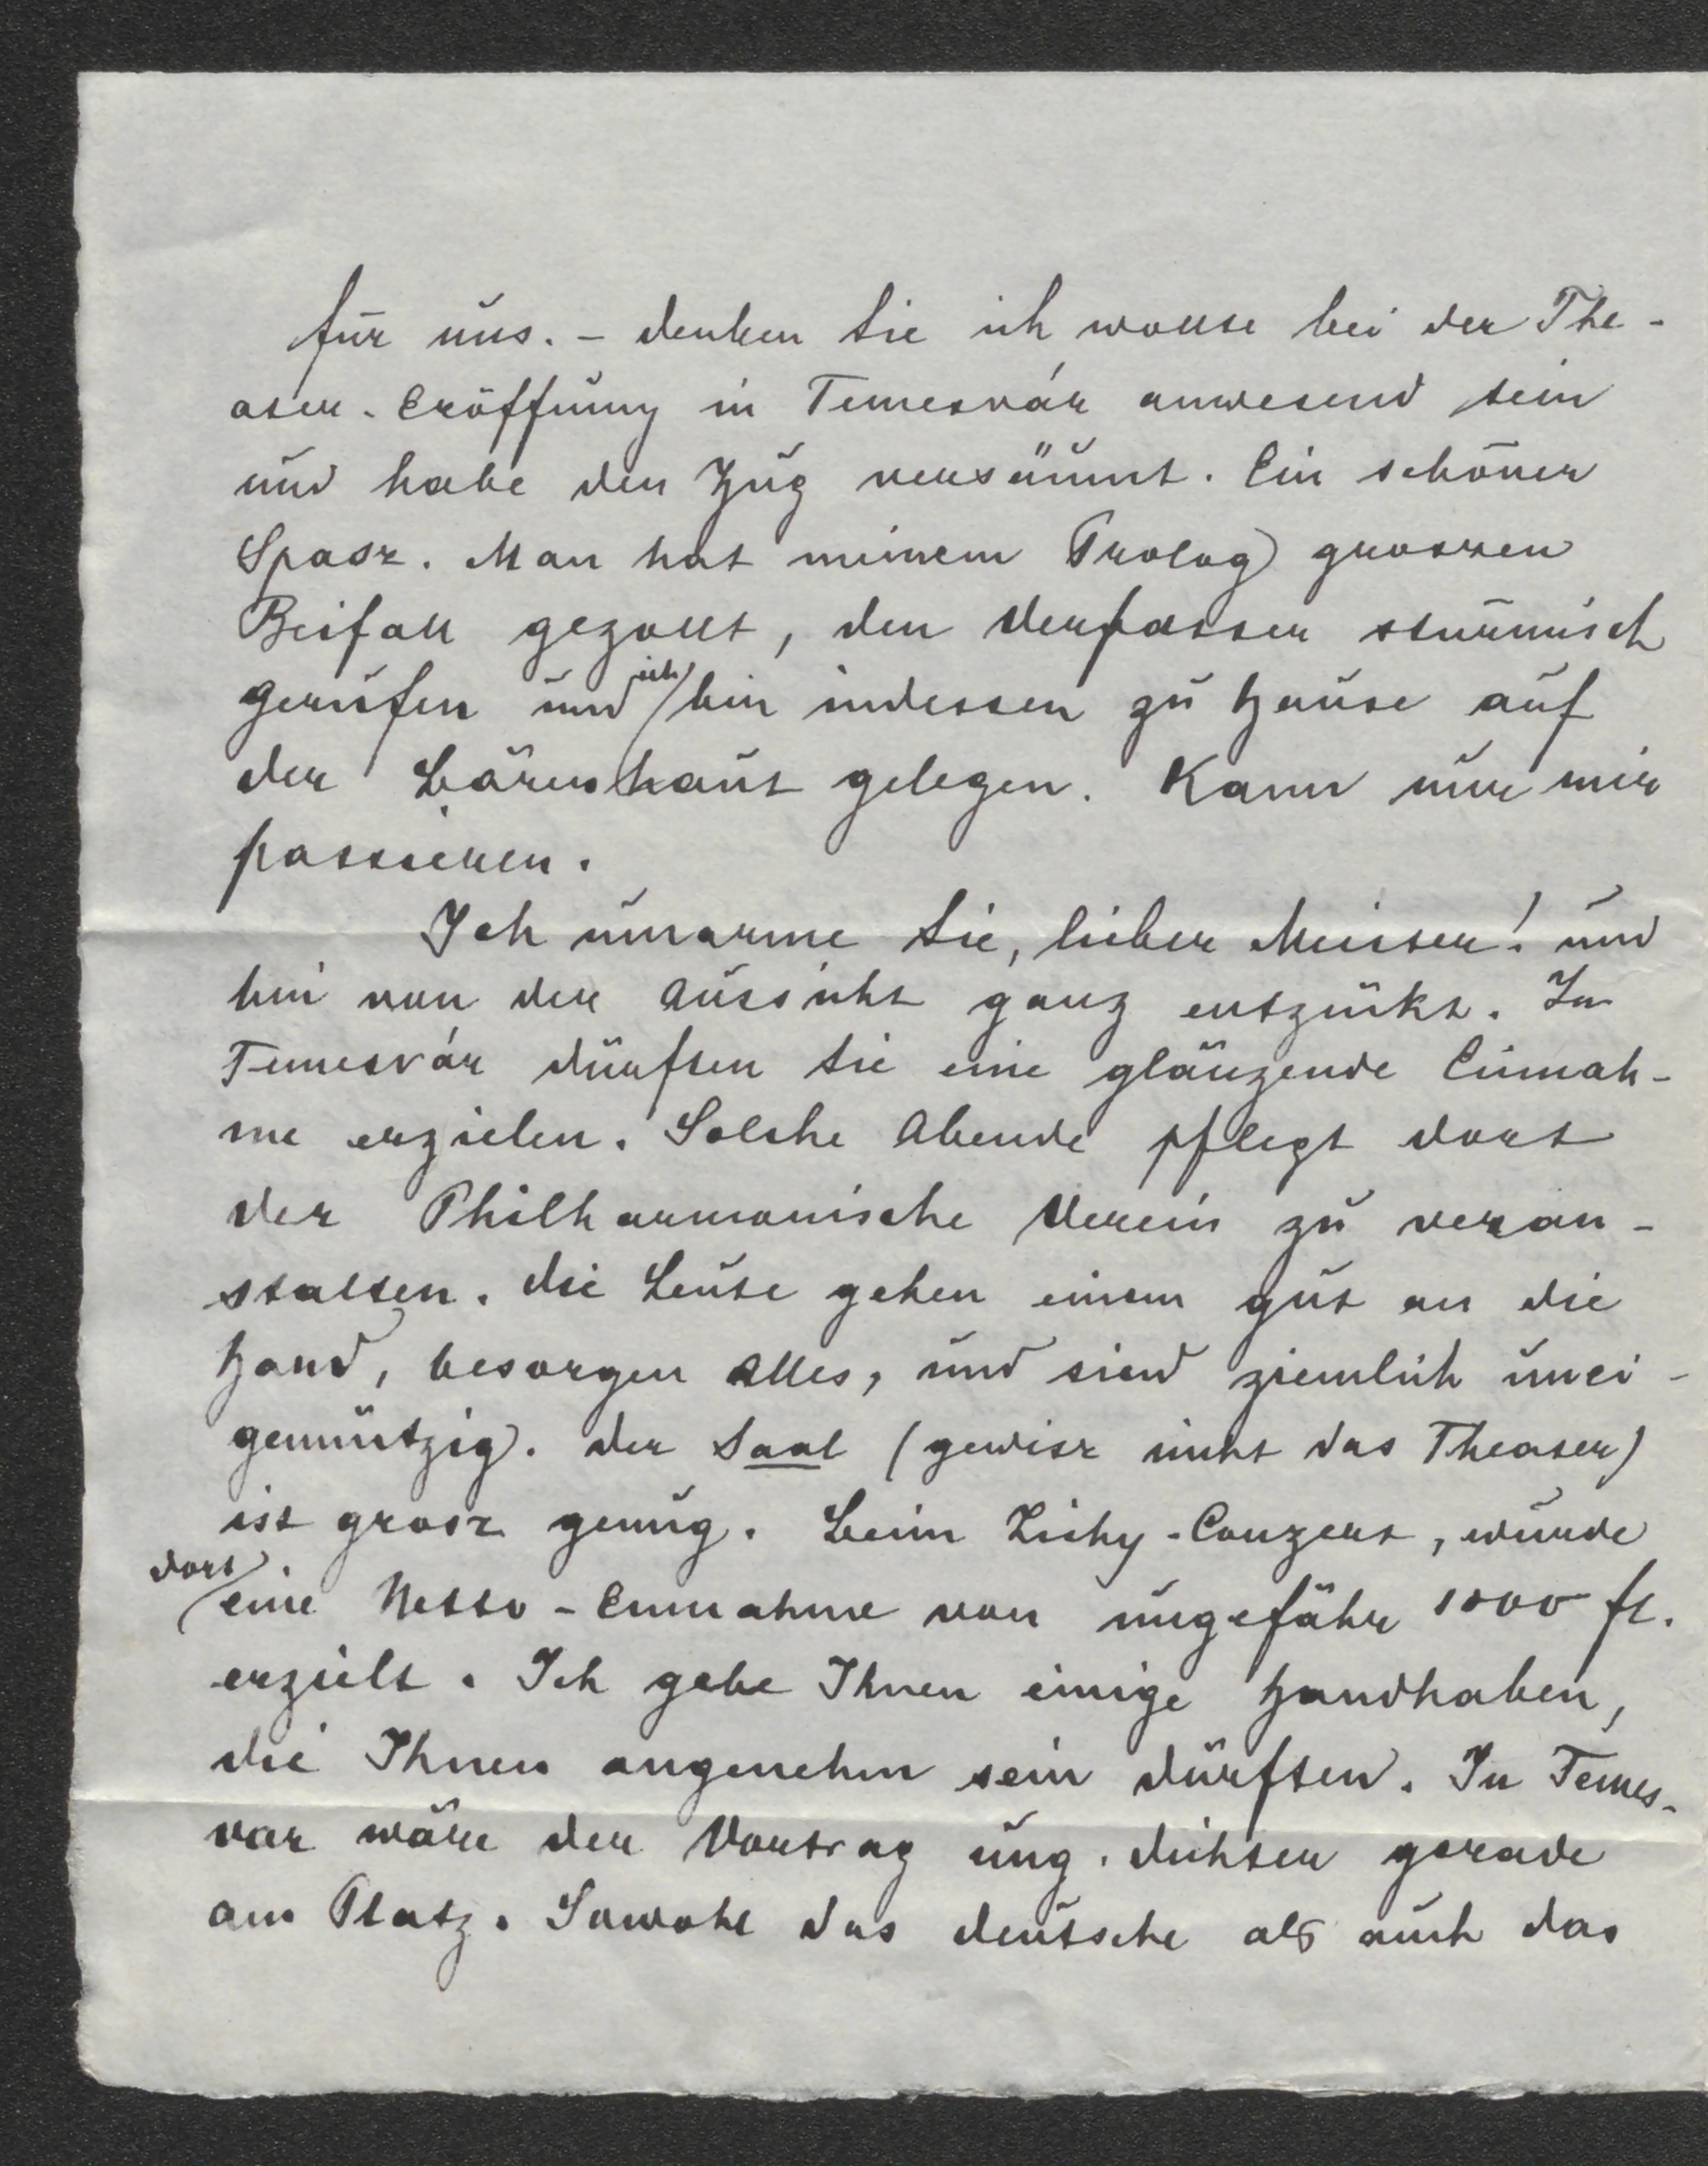 für uns. – Denken Sie ich wollte bei der The-
ater-Eröffnung in Temesvár anwesend sein
und habe den Zug versäumt. Ein schöner
Spasz. Man hat meinem Prolog groszen
Beifall gezollt, den Verfasser stürmisch
gerufen und ich bin indessen zu Hause auf
der Bärenhaut gelegen. Kann nur mir
passieren.
Ich umarme Sie, lieber Meister! und
bin von der Aussicht ganz entzückt. In
Temesvár dürften Sie eine glänzende Einnah-
me erzielen. Solche Abende pflegt dort
der Philharmonische Verein zu veran-
stalten. Die Leute gehen einem gut an die
Hand, besorgen Alles, und sind ziemlich unei-
gennützig. Der Saal (gewisz nicht das Theater)
ist grosz genug. Beim Zichy-Conzert, wurde
dort eine Netto-Einnahme von ungefähr 1000 fl.
erzielt. Ich gebe Ihnen einige Handhaben,
die Ihnen angenehm sein dürften. In Temes-
var wäre der Vortrag ung. Dichter gerade
am Platz. Sowohl das deutsche als auch das